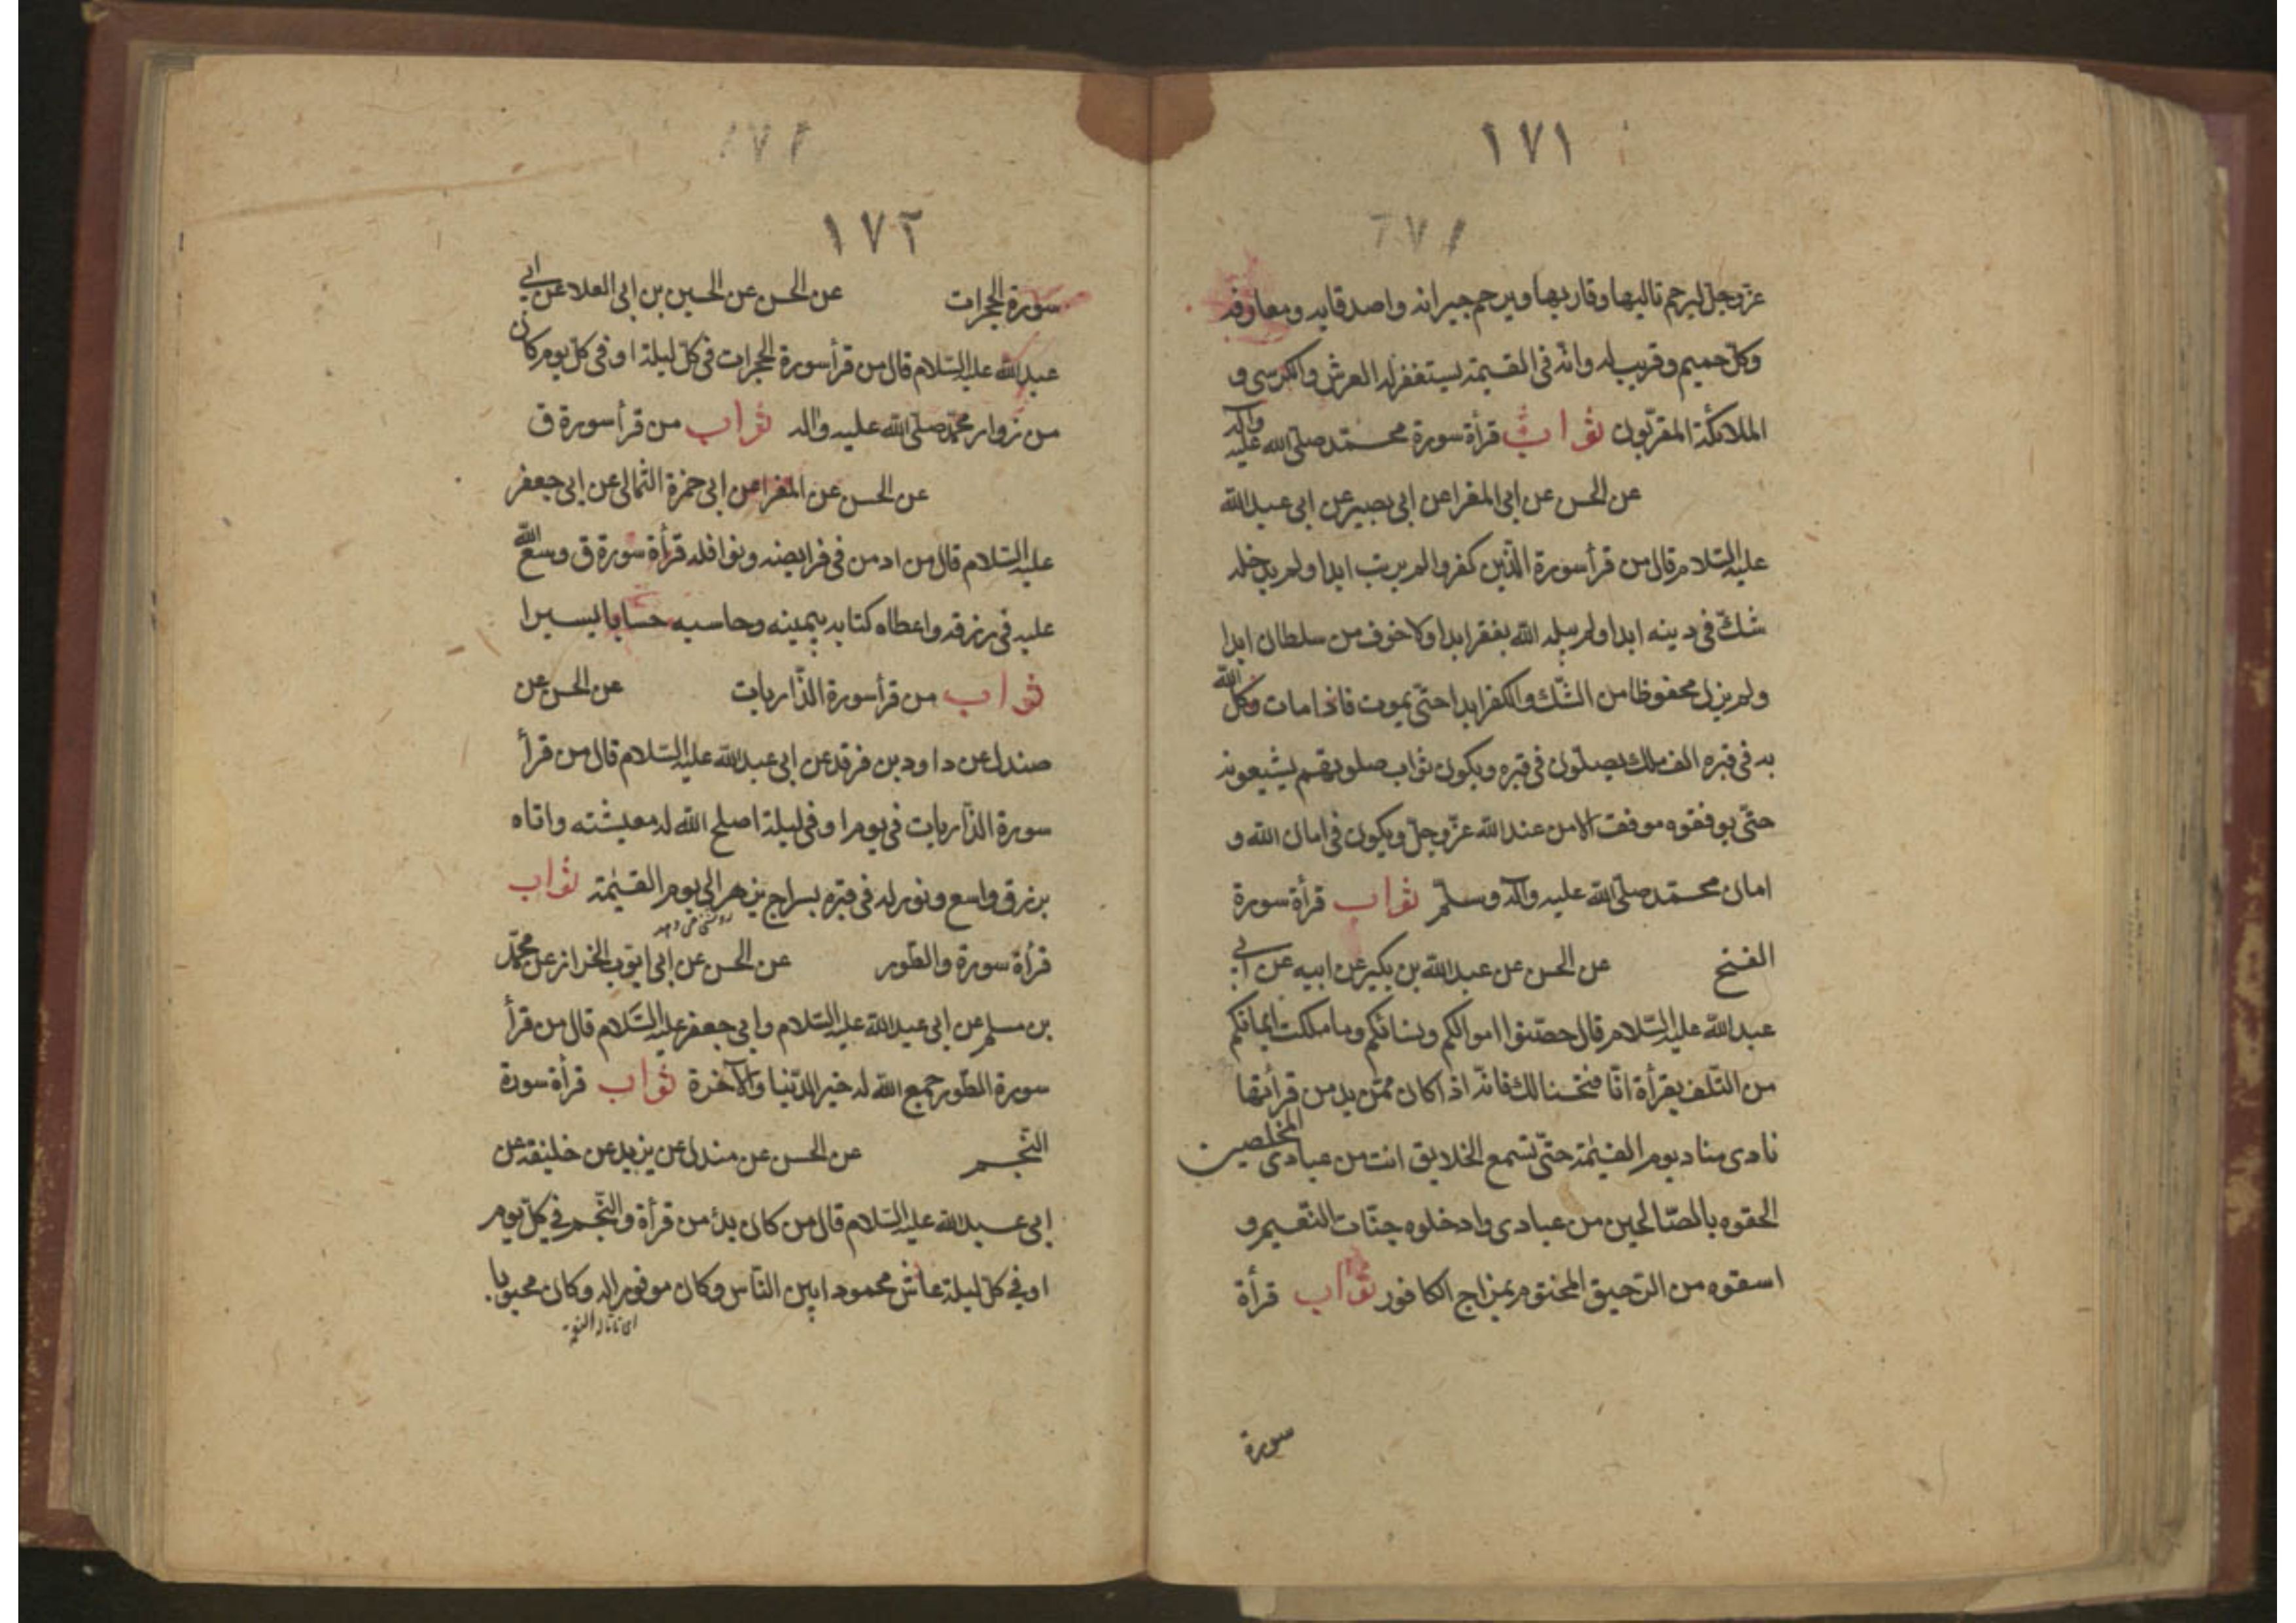 ١٧١
١٧٢
عزّ وجلّ ليرحم تاليها وقاريها ويرحم جيرانه واصدقايه ومعارفه
وكلّ حميم وقريب له وانّه فى القيٰمة يستغفر له العرش والكرسى و
الملائكة المقرّبون ثواب قرأة سورة محمّد صلّى الله عليه وآله
عن الحسن عن ابى المغرا عن ابى بصير عن ابى عبد الله
عليه السّلام قال من قرأ سورة الّذين كفروا لم يرتب ابدا ولم يدخله
شكّ فى دينه ابدا ولم يبله الله بفقر ابدا ولا خوف من سلطان ابدا
ولم يزل محفوظا من الشّك والكفر ابدا حتّى يموت فاذا مات وكلّ الله
به فى قبره الف ملك يصلّون فى قبره ويكون ثواب صلوتهم يشيعونه
حتّى يوفقوه موفقت الامن عند الله عزّ وجلّ ويكون فى امان الله و
امان محمّد صلّى الله عليه وآله وسلّم ثواب قرأة سورة
الفتح عن الحسن عن عبد الله بن بكير عن ابيه عن ابى
عبد الله عليه السّلام قال حصّنوا اموالكم ونسائكم وما ملكت ايمانكم
من التّلف بقرأة انّا فتحنا لك فانّه اذا كان ممّن يدمن قرأتها
نادى مناد يوم القيٰمة حتّى تسمع الخلايق انت من عبادى المخلصين
الحقوه بالصّالحين من عبادى وادخلوه جنّات النّعيم و
اسقوه من الرّحيق المختوم بمزاج الكافور ثواب قرأة
سورة
١٧٢
سورة الحجرات عن الحسن عن الحسين بن ابى العلا عن ابى
عبد الله عليه السّلام قال من قرأ سورة الحجرات فى كلّ ليلة او فى كلّ يوم كان
من زوار محمّد صلّى الله عليه واله ثواب من قرأ سورة ق
عن الحسن عن المغرا عن ابى حمزة الثمالى عن ابى جعفر
عليه السّلام قال من ادمن فى فرايضه ونوافله قرأة سورة ق وسع الله
عليه فى رزقه واعطاه كتابه بيمينه وحاسبه حسابا يسيرا
ثواب من قرأ سورة الذّاريات عن الحسن عن
صندل عن داود بن فرقد عن ابى عبد الله عليه السّلام قال من قرأ
سورة الذّاريات فى يوم او فى ليلة اصلح الله له معيشته واتاه
برزق واسع ونور له فى قبره بسراج يزهر الى يوم القيٰمة ثواب
قرأة سورة والطّور عن الحسن عن ابى ايّوب الخراز عن محمّد
بن مسلم عن ابى عبد الله عليه السّلام وابى جعفر عليه السّلام قال من قرأ
سورة الطّور جمع الله له خير الدّنيا والآخرة ثواب قرأة سورة
النّجم عن الحسن عن مندل عن يزيد عن خليفة عن
ابى عبد الله عليه السّلام قال من كان يدمن قرأة والنّجم فى كلّ يوم
او فى كلّ ليلة عاش محمودا بين النّاس وكان موفورا له وكان محبوبا